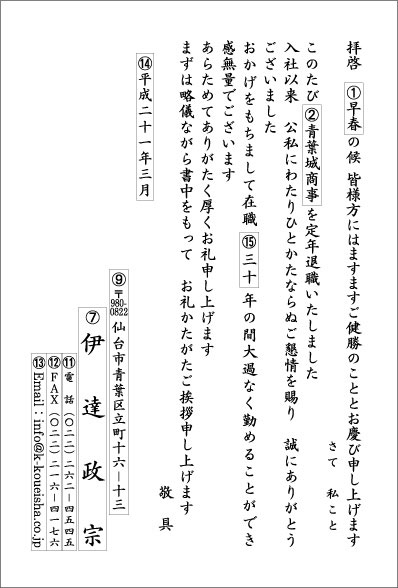 拝啓 ①早春の候 皆様方にはますますご健勝のこととお慶び申し上げます
さて 私こと
このたび②青葉城商事を定年退職いたしました
入社以来 公私にわたりひとかたならぬご懇情を賜り 誠にありがとう
ございました
おかげをもちまして在職⑮三十年の間大過なく勤めることができ
感無量でございます
あらためてありがたく厚くお礼申し上げます
まずは略儀ながら書中をもって お礼かたがたご挨拶申し上げます
敬具
⑭平成二十一年三月
⑨〒980-0822仙台市青葉区立町十六－十三
⑦伊達政宗
⑪電話（〇二二）二六二－四五四五
⑫FAX（〇二二）二一六－四一一六
⑬Email：info@k-koueisha.co.jp